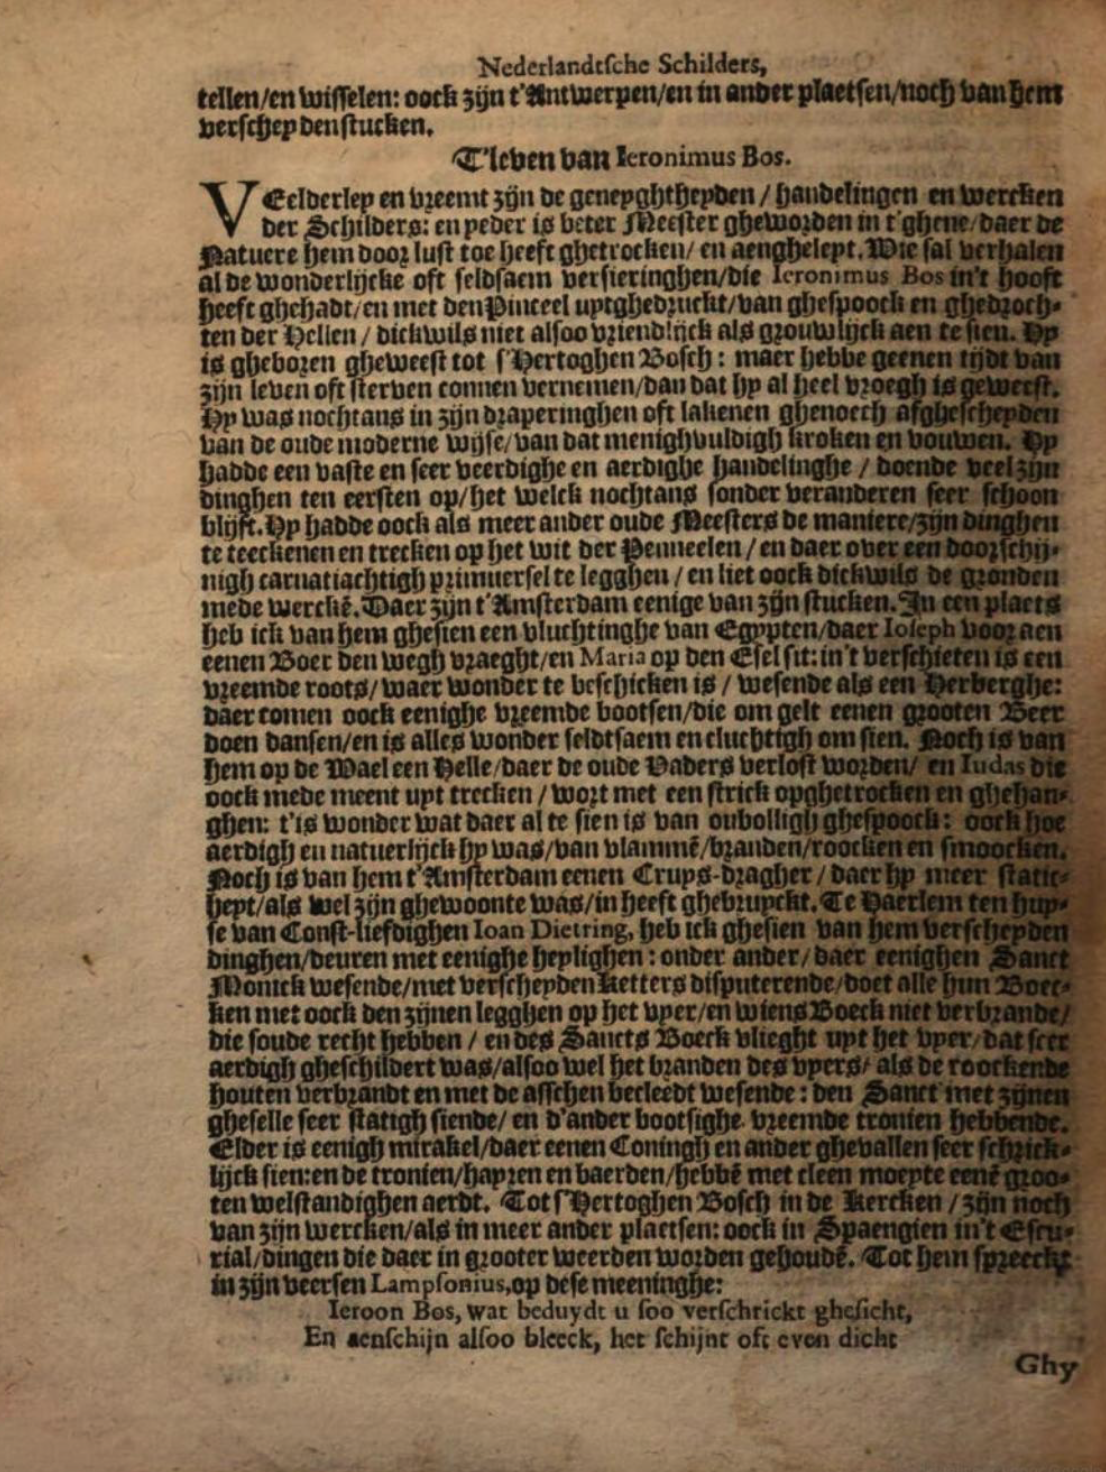 Nederlandtsche Schilders,
tellen/en wisselen: oock zijn t'Antwerpen/en in ander plaetsen/noch van hem
verscheyden stucken.
T'leven van Ieronimus Bos.
VEelderley en vreemt zijn de geneyghtheyden / handelingen en wercken
der Schilders: en yeder is beter Meester gheworden in t'ghene/daer de
Natuere hem door lust toe heeft ghetrocken/ en aengheleyt. Wie sal verhalen
al de wonderlijcke oft seldsaem versieringhen/die Ieronimus Bos in't hooft
heeft ghehadt/en met den Pinceel uytghedruckt/van ghespoock en ghedroch-
ten der Hellen / dickwils niet alsoo vriendlijck als grouwlijck aen te sien. Hy
is gheboren gheweest tot s'Hertoghen Bosch: maer hebbe geenen tijdt van
zijn leven oft sterven connen vernemen/dan dat hy al heel vroegh is geweest.
Hy was nochtans in zijn draperinghen oft lakenen ghenoech afghescheyden
van de oude moderne wijse/van dat menighvuldigh kroken en vouwen. Hy
hadde een vaste en seer veerdighe en aerdighe handelinghe / doende veel zijn
dinghen ten eersten op/het welck nochtans sonder veranderen seer schoon
blijft. Hy hadde oock als meer ander oude Meesters de maniere/zijn dinghen
te teeckenen en trecken op het wit der Penneelen / en daer over een doorschij-
nigh carnatiachtigh primuersel te legghen / en liet oock dickwils de gronden
mede werckē. Daer zijn t'Amsterdam eenige van zijn stucken. In een plaets
heb ick van hem ghesien een vluchtinghe van Egypten/daer Ioseph voor aen
eenen Boer den wegh vraeght/en Maria op den Esel sit: in't verschieten is een
vreemde roots/waer wonder te beschicken is / wesende als een Herberghe:
daer comen oock eenighe vreemde bootsen/die om gelt eenen grooten Beer
doen dansen/en is alles wonder seldtsaem en cluchtigh om sien. Noch is van
hem op de Wael een Helle/daer de oude Vaders verlost worden/ en Iudas die
oock mede meent uyt trecken / wort met een strick opghetrocken en ghehan-
ghen: t'is wonder wat daer al te sien is van oubolligh ghespoock: oock hoe
aerdigh en natuerlijck hy was/van vlammē/branden/roocken en smoocken.
Noch is van hem t'Amsterdam eenen Cruys-dragher / daer hy meer static-
heyt/als wel zijn ghewoonte was/in heeft ghebruyckt. Te Haerlem ten huy-
se van Const-liefdighen Ioan Dietring, heb ick ghesien van hem verscheyden
dinghen/deuren met eenighe heylighen: onder ander/daer eenighen Sanct
Monick wesende/met verscheyden Ketters disputerende/doet alle hun Boec-
ken met oock den zijnen legghen op het vyer/en wiens Boeck niet verbrande/
die soude recht hebben / en des Sancts Boeck vlieght uyt het vyer/dat seer
aerdigh gheschildert was/alsoo wel het branden des vyers/ als de roockende
houten verbrandt en met de asschen becleedt wesende: den Sanct met zijnen
gheselle seer statigh siende/ en d'ander bootsighe vreemde tronien hebbende.
Elder is eenigh mirakel/daer eenen Coningh en ander ghevallen seer schrick-
lijck sien: en de tronien/hayren en baerden/hebbē met cleen moeyte eenē groo-
ten welstandighen aerdt. Tot s'Hertoghen Bosch in de Kercken / zijn noch
van zijn wercken/als in meer ander plaetsen: oock in Spaengien in't Escu-
rial/dingen die daer in grooter weerden worden gehoudē. Tot hem spreeckt
in zijn veersen Lampsonius, op dese meeninghe:
Ieroon Bos, wat beduydt u soo verschrickt ghesicht,
En aenschijn alsoo bleeck, het schijnt oft even dicht
Ghy